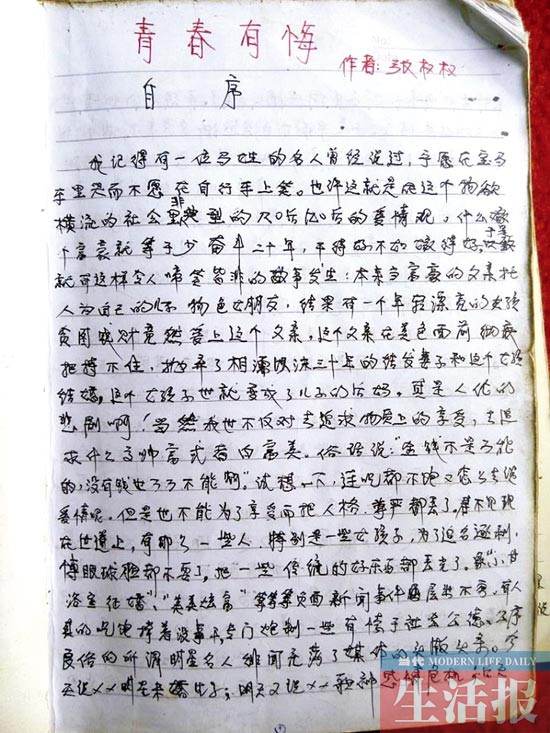 青春有悔
作者:张权权
自序
我记得有一位马姓的名人曾经说过,宁愿在宝马
车里哭而不愿在自行车上笑。也许这就是在这个物欲
横流的社会里非典型的70后80后的爱情观。什么嫁
个富豪就等于少奋斗二十年,干得好不如嫁得好
就有这样令人啼笑皆非的故事发生:本来富豪的父亲托
人为自己的儿子物色女朋友,结果有一个年轻漂亮的女孩
贪图钱财竟然爱上这个父亲,这个父亲在美色面前
把持不住,抛弃了相濡以沫三十年的结发妻子和这个女孩
结婚,这个女孩子也就变成了儿子的后妈。真是人伦的
悲剧啊!当然我也不反对去追求物质上的享受,去追
求什么高帅富或者白富美。俗话说:“金钱不是万能
的,没有钱也万万不能啊”。试想一下,连吃都不饱又怎么去谈
爱情呢。但是也不能为了享受而把人格,尊严都丢了。
在世道上,有那么一些人,特别是一些女孩子,为了追名逐利,
博眼球脸都不要了,把一些传统的好东西都丢光了。
浴室征婚”,“炫富”等等负面新闻事件层出不穷。有人
真的吃饱撑着没事干,专门炮制一些有悖于社会公德、公序
良俗的所谓明星名人绯闻充满了媒体的头版头条。今
天说××明星未婚生子;明天又说××歌神感情危机
当代 MODERN LIFE DAILY
生活报